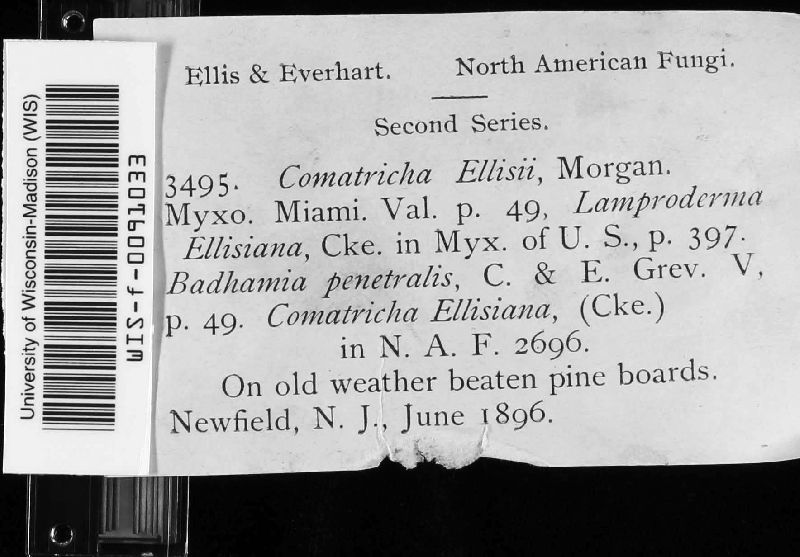 University of Wisconsin-Madison (WIS)
WIS-f-0091033
Ellis & Everhart. North American Fungi.
Second Series.
3495. Comatricha Ellisii, Morgan.
Myxo. Miami. Val. p. 49, Lamproderma
Ellisiana, Cke. in Myx. of U. S., p. 397.
Badhamia penetralis, C. & E. Grev. V,
p. 49. Comatricha Ellisiana, (Cke.)
in N. A. F. 2696.
On old weather beaten pine boards.
Newfield, N. J., June 1896.